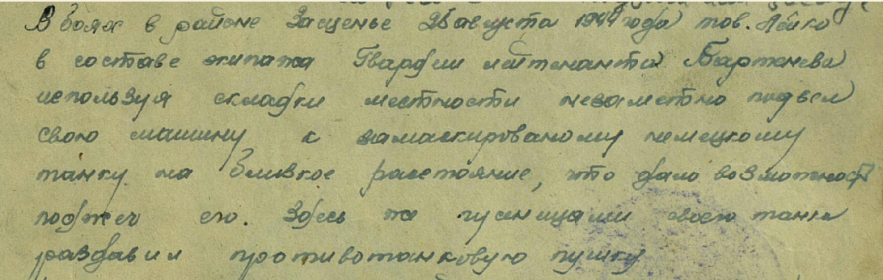 В боях в районе Защенье 28 августа 1944 года тов. Лейко
в составе экипажа Гвардии лейтенанта Бартенева
используя складки местности незаметно подвел
свою машину к замаскированому немецкому
танку на близкое расстояние, что дало возможность
поджеч его. Здесь же гусеницами своего танка
раздавил противотанковую пушку